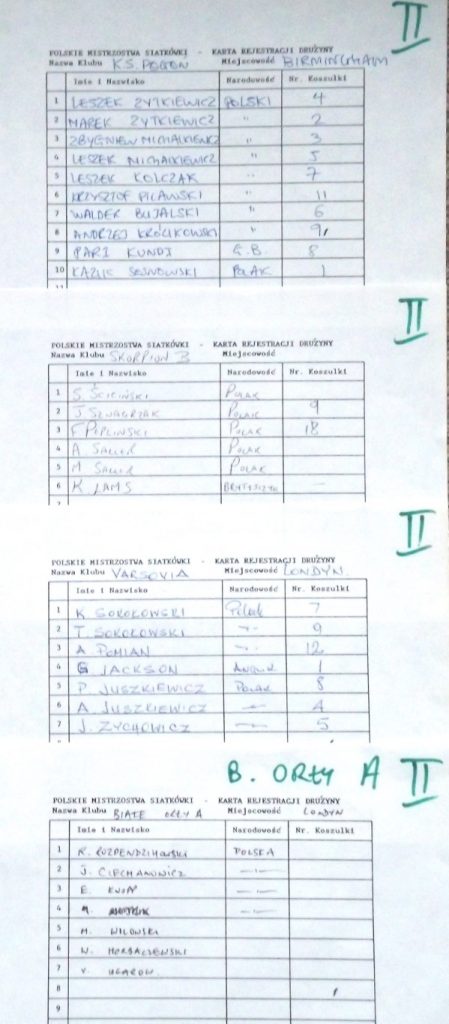 II
POLSKIE MISTRZOSTWA SIATKÓWKI - KARTA REJESTRACJI DRUŻYNY
Nazwa Klubu K.S. POGOŃ Miejscowość BIRMINGHAM
Imię i Nazwisko Narodowość Nr. Koszulki
1 LESZEK ZYTKIEWICZ POLSKI 4
2 MAREK ZYTKIEWICZ " 2
3 ZBYGNIEW MICHALKIEWICZ " 3
4 LESZEK MICHALKIEWICZ " 5
5 LESZEK KOLCZAK " 7
6 KRZYSZTOF PILAWSKI " 11
7 WALDER BUJALSKI " 6
8 ANDRZEJ KRÓLIKOWSKI " 9
9 PARI KUNDI G.B. 8
10 KAZIK SOSNOWSKI POLAK 1
11
II
POLSKIE MISTRZOSTWA SIATKÓWKI - KARTA REJESTRACJI DRUŻYNY
Nazwa Klubu SKORPION B Miejscowość
Imię i Nazwisko Narodowość Nr. Koszulki
1 S. ŚCIPIŃSKI POLAK
2 J. SZWAGRZAK POLAK 9
3 F. POPLINSKI POLAK 18
4 A. POLAK
5 M. POLAK
6 K. IAMS BRYTYJCZYK —
7
II
POLSKIE MISTRZOSTWA SIATKÓWKI - KARTA REJESTRACJI DRUŻYNY
Nazwa Klubu VARSOVIA Miejscowość LONDYN
Imię i Nazwisko Narodowość Nr. Koszulki
1 K. SOKOŁOWSKI Polak 7
2 T. SOKOŁOWSKI -"- 9
3 A. POMIAN -"- 12
4 G. JACKSON ANGLIK 1
5 P. JUSZKIEWICZ POLAK 8
6 A. JUSZKIEWICZ -"- 4
7 J. ZYCHOWICZ -"- 5
B. ORŁY A II
POLSKIE MISTRZOSTWA SIATKÓWKI - KARTA REJESTRACJI DRUŻYNY
Nazwa Klubu BIAŁE ORŁY A Miejscowość LONDYN
Imię i Nazwisko Narodowość Nr. Koszulki
1 R. POLSKA
2 J. CIECHANOWICZ -"-
3 E. KNOPP -"-
4 M. -"-
5 M. WILOWSKI
6 W. HORBACZEWSKI
7 V. UGAROW
8
9